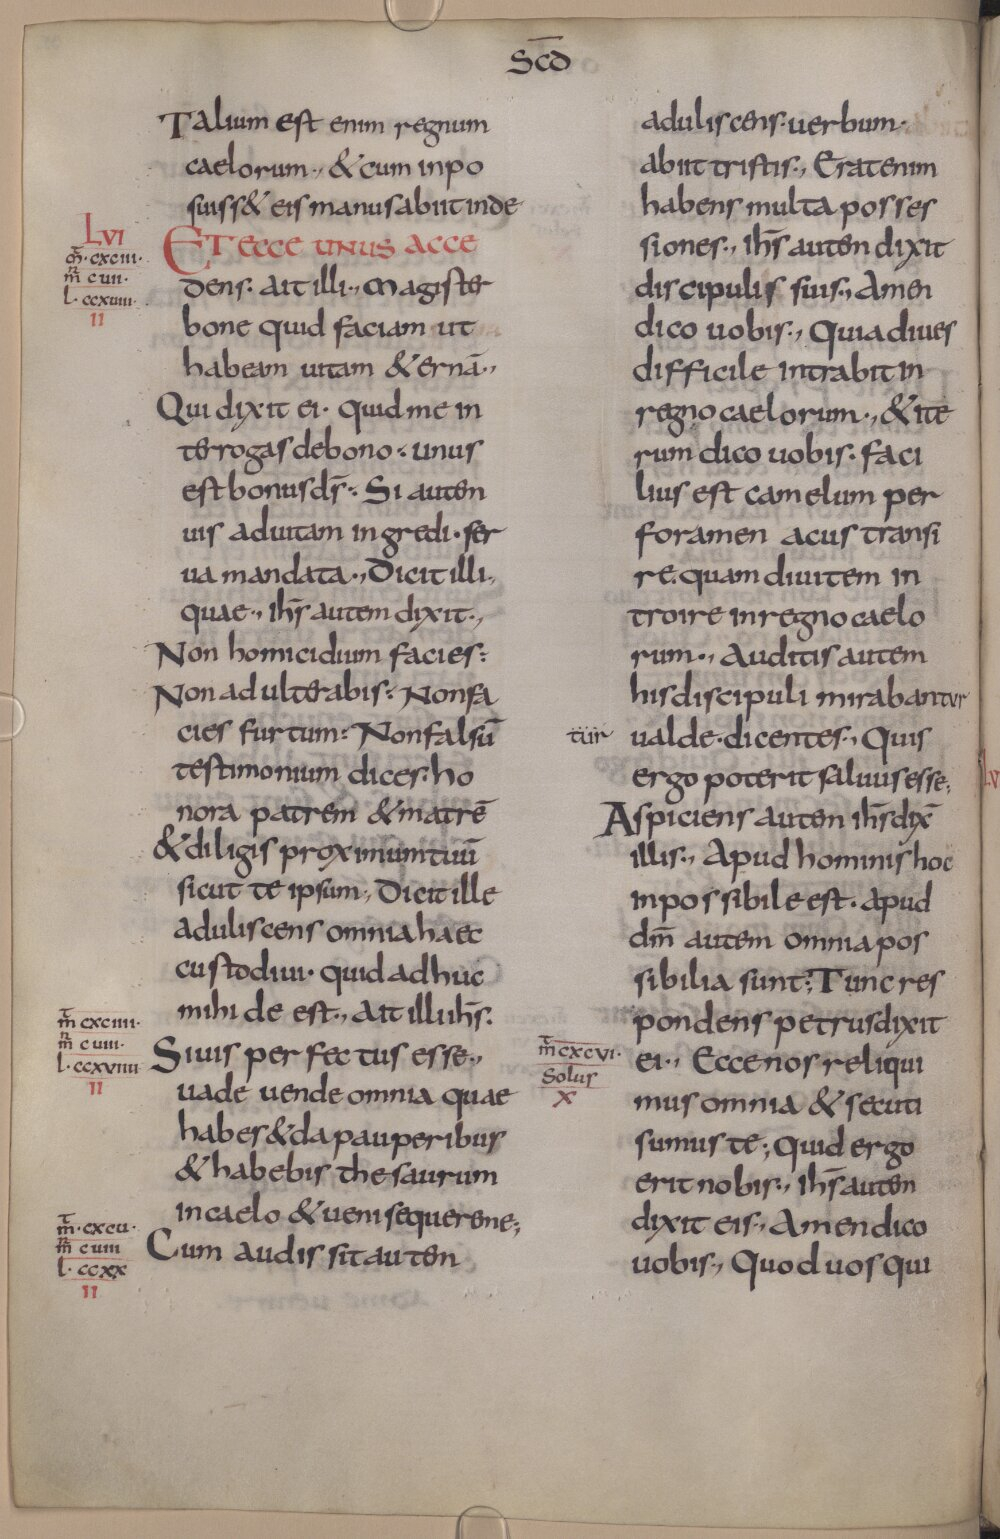 Scd̄
Talium est enim regnum
caelorum., & cum inpo
suiss& eis manus abiit inde
LVI
Et ecce unus acce
mͭ·cxciii·
mͬ cuii·
l·ccxuiii·
II
dens: ait illi., magister
bone quid faciam ut
habeam uitam &ernā.,
Qui dixit ei· quid me in
terrogas de bono: unus
est bonus ds̄: Si autem
uis ad uitam ingredi· ser
ua mandata., Dicit illi,
quae., ihs̄ autem dixit.,
Non homicidium facies:
Non adulterabis: Non fa
cies furtum: Non falsū
testimonium dices: ho
nora patrem & matrē
& diligis proximum tuū
sicut te ipsum., Dicit ille
aduliscens omnia haec
custodiui· quid adhuc
mihi de est., ait illi ihs̄:
mͭ cxciiii·
mͬ cuiii·
l·ccxuiiii
II
Si uis perfectus esse.,
uade uende omnia quae
habes & da pauperibus
& habebis thesaurum
in caelo & ueni sequere me;
mͭ·cxcu·
mͬ cuiii
l·ccxx
II
Cum audissit autem
aduliscens: uerbum·
abiit tristis., Erat enim
habens multa posses
siones., ihs̄ autem dixit
discipulis suis., Amen
dico uobis., Quia diues
difficile intrabit in
regno caelorum., & ite
rum dico uobis: faci
lius est camelum per
foramen acus transi
re. quam diuitem in
troire in regno caelo
rum., Auditis autem
his discipuli mirabantur
tur
ualde· dicentes., Quis
ergo poterit saluus esse;
Aspiciens autem ihs̄ dix̄
illis., Apud hominis hoc
inpossibile est· apud
dm̄ autem omnia pos
sibilia sunt; Tunc res
pondens petrus dixit
mͭ cxcvi·
Solus
X
ei., Ecce nos reliqui
mus omnia & secuti
sumus te; Quid ergo
erit nobis., ihs̄ autem
dixit eis., Amen dico
uobis., Quod uos qui